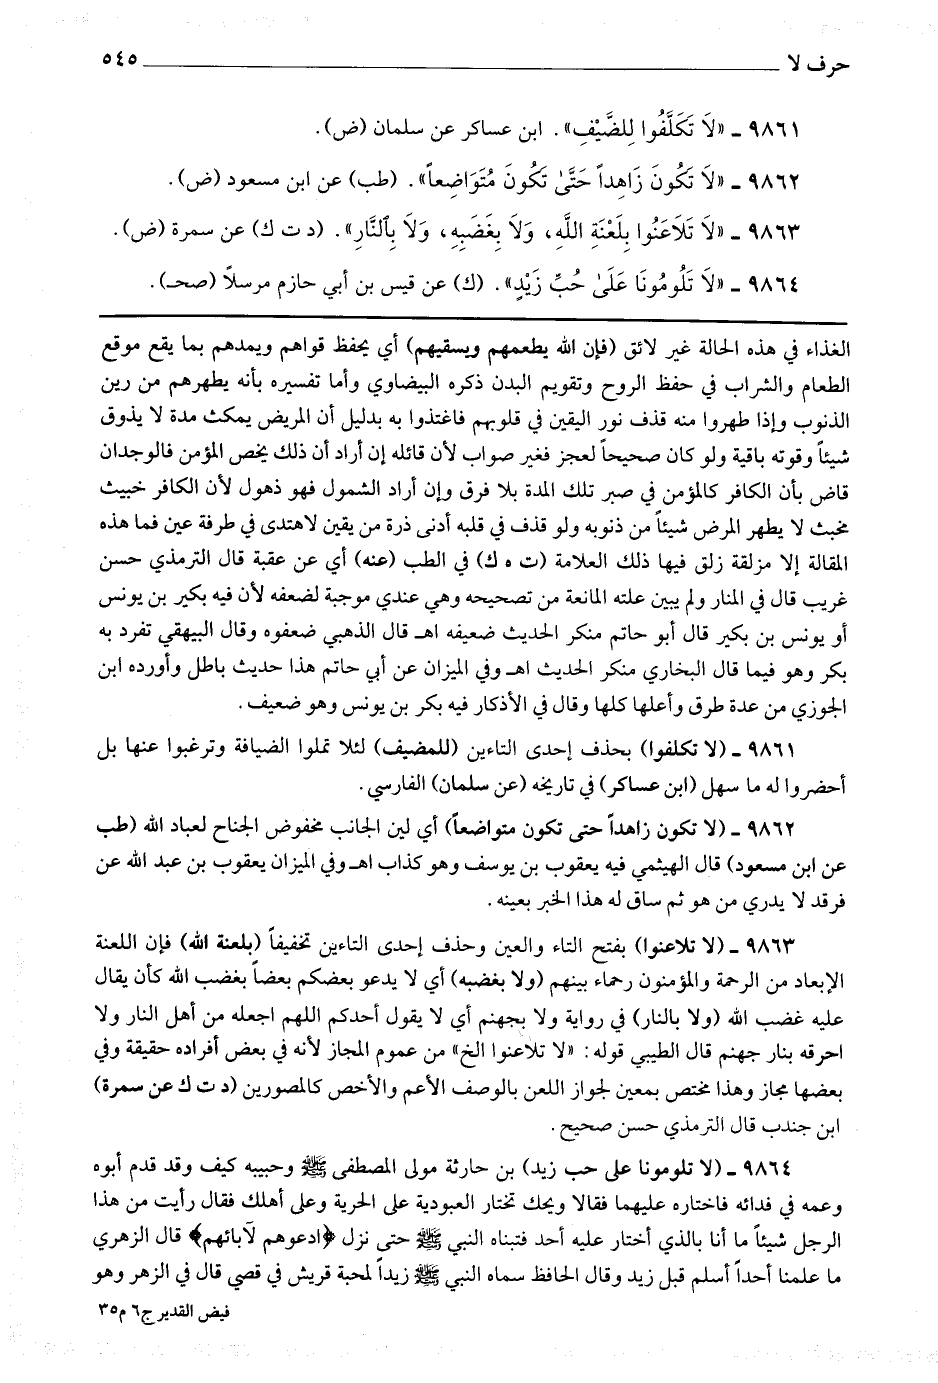 حرف لا ـــــــــ ٥٤٥
٩٨٦١ ـ «لاَ تَكَلَّفُوا لِلضَّيْفِ». ابن عساكر عن سلمان (ض).
٩٨٦٢ ـ «لاَ تَكُونَ زَاهِداً حَتَّىٰ تَكُونَ مُتَوَاضِعاً». (طب) عن ابن مسعود (ض).
٩٨٦٣ ـ «لاَ تَلاَعَنُوا بِلَعْنَةِ اللَّهِ، وَلاَ بِغَضَبِهِ، وَلاَ بِٱلنَّارِ». (د ت ك) عن سمرة (ض).
٩٨٦٤ ـ «لاَ تَلُومُونَا عَلَىٰ حُبِّ زَيْدٍ». (ك) عن قيس بن أبي حازم مرسلاً (صحـ).
الغذاء في هذه الحالة غير لائق (فإن الله يطعمهم ويسقيهم) أي يحفظ قواهم ويمدهم بما يقع موقع
الطعام والشراب في حفظ الروح وتقويم البدن ذكره البيضاوي وأما تفسيره بأنه يطهرهم من رين
الذنوب وإذا طهروا منه قذف نور اليقين في قلوبهم فاغتذوا به بدليل أن المريض يمكث مدة لا يذوق
شيئاً وقوته باقية ولو كان صحيحاً لعجز فغير صواب لأن قائله إن أراد أن ذلك يخص المؤمن فالوجدان
قاض بأن الكافر كالمؤمن في صبر تلك المدة بلا فرق وإن أراد الشمول فهو ذهول لأن الكافر خبيث
مخبث لا يطهر المرض شيئاً من ذنوبه ولو قذف في قلبه أدنى ذرة من يقين لاهتدى في طرفة عين فما هذه
المقالة إلا مزلقة زلق فيها ذلك العلامة (ت ه ك) في الطب (عنه) أي عن عقبة قال الترمذي حسن
غريب قال في المنار ولم يبين علته المانعة من تصحيحه وهي عندي موجبة لضعفه لأن فيه بكير بن يونس
أو يونس بن بكير قال أبو حاتم منكر الحديث ضعيفه اهـ قال الذهبي ضعفوه وقال البيهقي تفرد به
بكر وهو فيما قال البخاري منكر الحديث اهـ وفي الميزان عن أبي حاتم هذا حديث باطل وأورده ابن
الجوزي من عدة طرق وأعلها كلها وقال في الأذكار فيه بكر بن يونس وهو ضعيف.
٩٨٦١ ـ (لا تكلفوا) بحذف إحدى التاءين (للمضيف) لئلا تملوا الضيافة وترغبوا عنها بل
أحضروا له ما سهل (ابن عساكر) في تاريخه (عن سلمان) الفارسي.
٩٨٦٢ ـ (لا تكون زاهداً حتى تكون متواضعاً) أي لين الجانب مخفوض الجناح لعباد الله (طب
عن ابن مسعود) قال الهيثمي فيه يعقوب بن يوسف وهو كذاب اهـ وفي الميزان يعقوب بن عبد الله عن
فرقد لا يدري من هو ثم ساق له هذا الخبر بعينه.
٩٨٦٣ ـ (لا تلاعنوا) بفتح التاء والعين وحذف إحدى التاءين تخفيفاً (بلعنة الله) فإن اللعنة
الإبعاد من الرحمة والمؤمنون رحماء بينهم (ولا بغضبه) أي لا يدعو بعضكم بعضاً بغضب الله كأن يقال
عليه غضب الله (ولا بالنار) في رواية ولا بجهنم أي لا يقول أحدكم اللهم اجعله من أهل النار ولا
احرقه بنار جهنم قال الطيبي قوله: «لا تلاعنوا الخ» من عموم المجاز لأنه في بعض أفراده حقيقة وفي
بعضها مجاز وهذا مختص بمعين لجواز اللعن بالوصف الأعم والأخص كالمصورين (د ت ك عن سمرة)
ابن جندب قال الترمذي حسن صحيح.
٩٨٦٤ ـ (لا تلومونا على حب زيد) بن حارثة مولى المصطفى ﷺ وحبيبه كيف وقد قدم أبوه
وعمه في فدائه فاختاره عليهما فقالا ويحك تختار العبودية على الحرية وعلى أهلك فقال رأيت من هذا
الرجل شيئاً ما أنا بالذي أختار عليه أحد فتبناه النبي ﷺ حتى نزل ﴿ادعوهم لآبائهم﴾ قال الزهري
ما علمنا أحداً أسلم قبل زيد وقال الحافظ سماه النبي ﷺ زيداً لمحبة قريش في قصي قال في الزهر وهو
فيض القدير ج٦ م٣٥